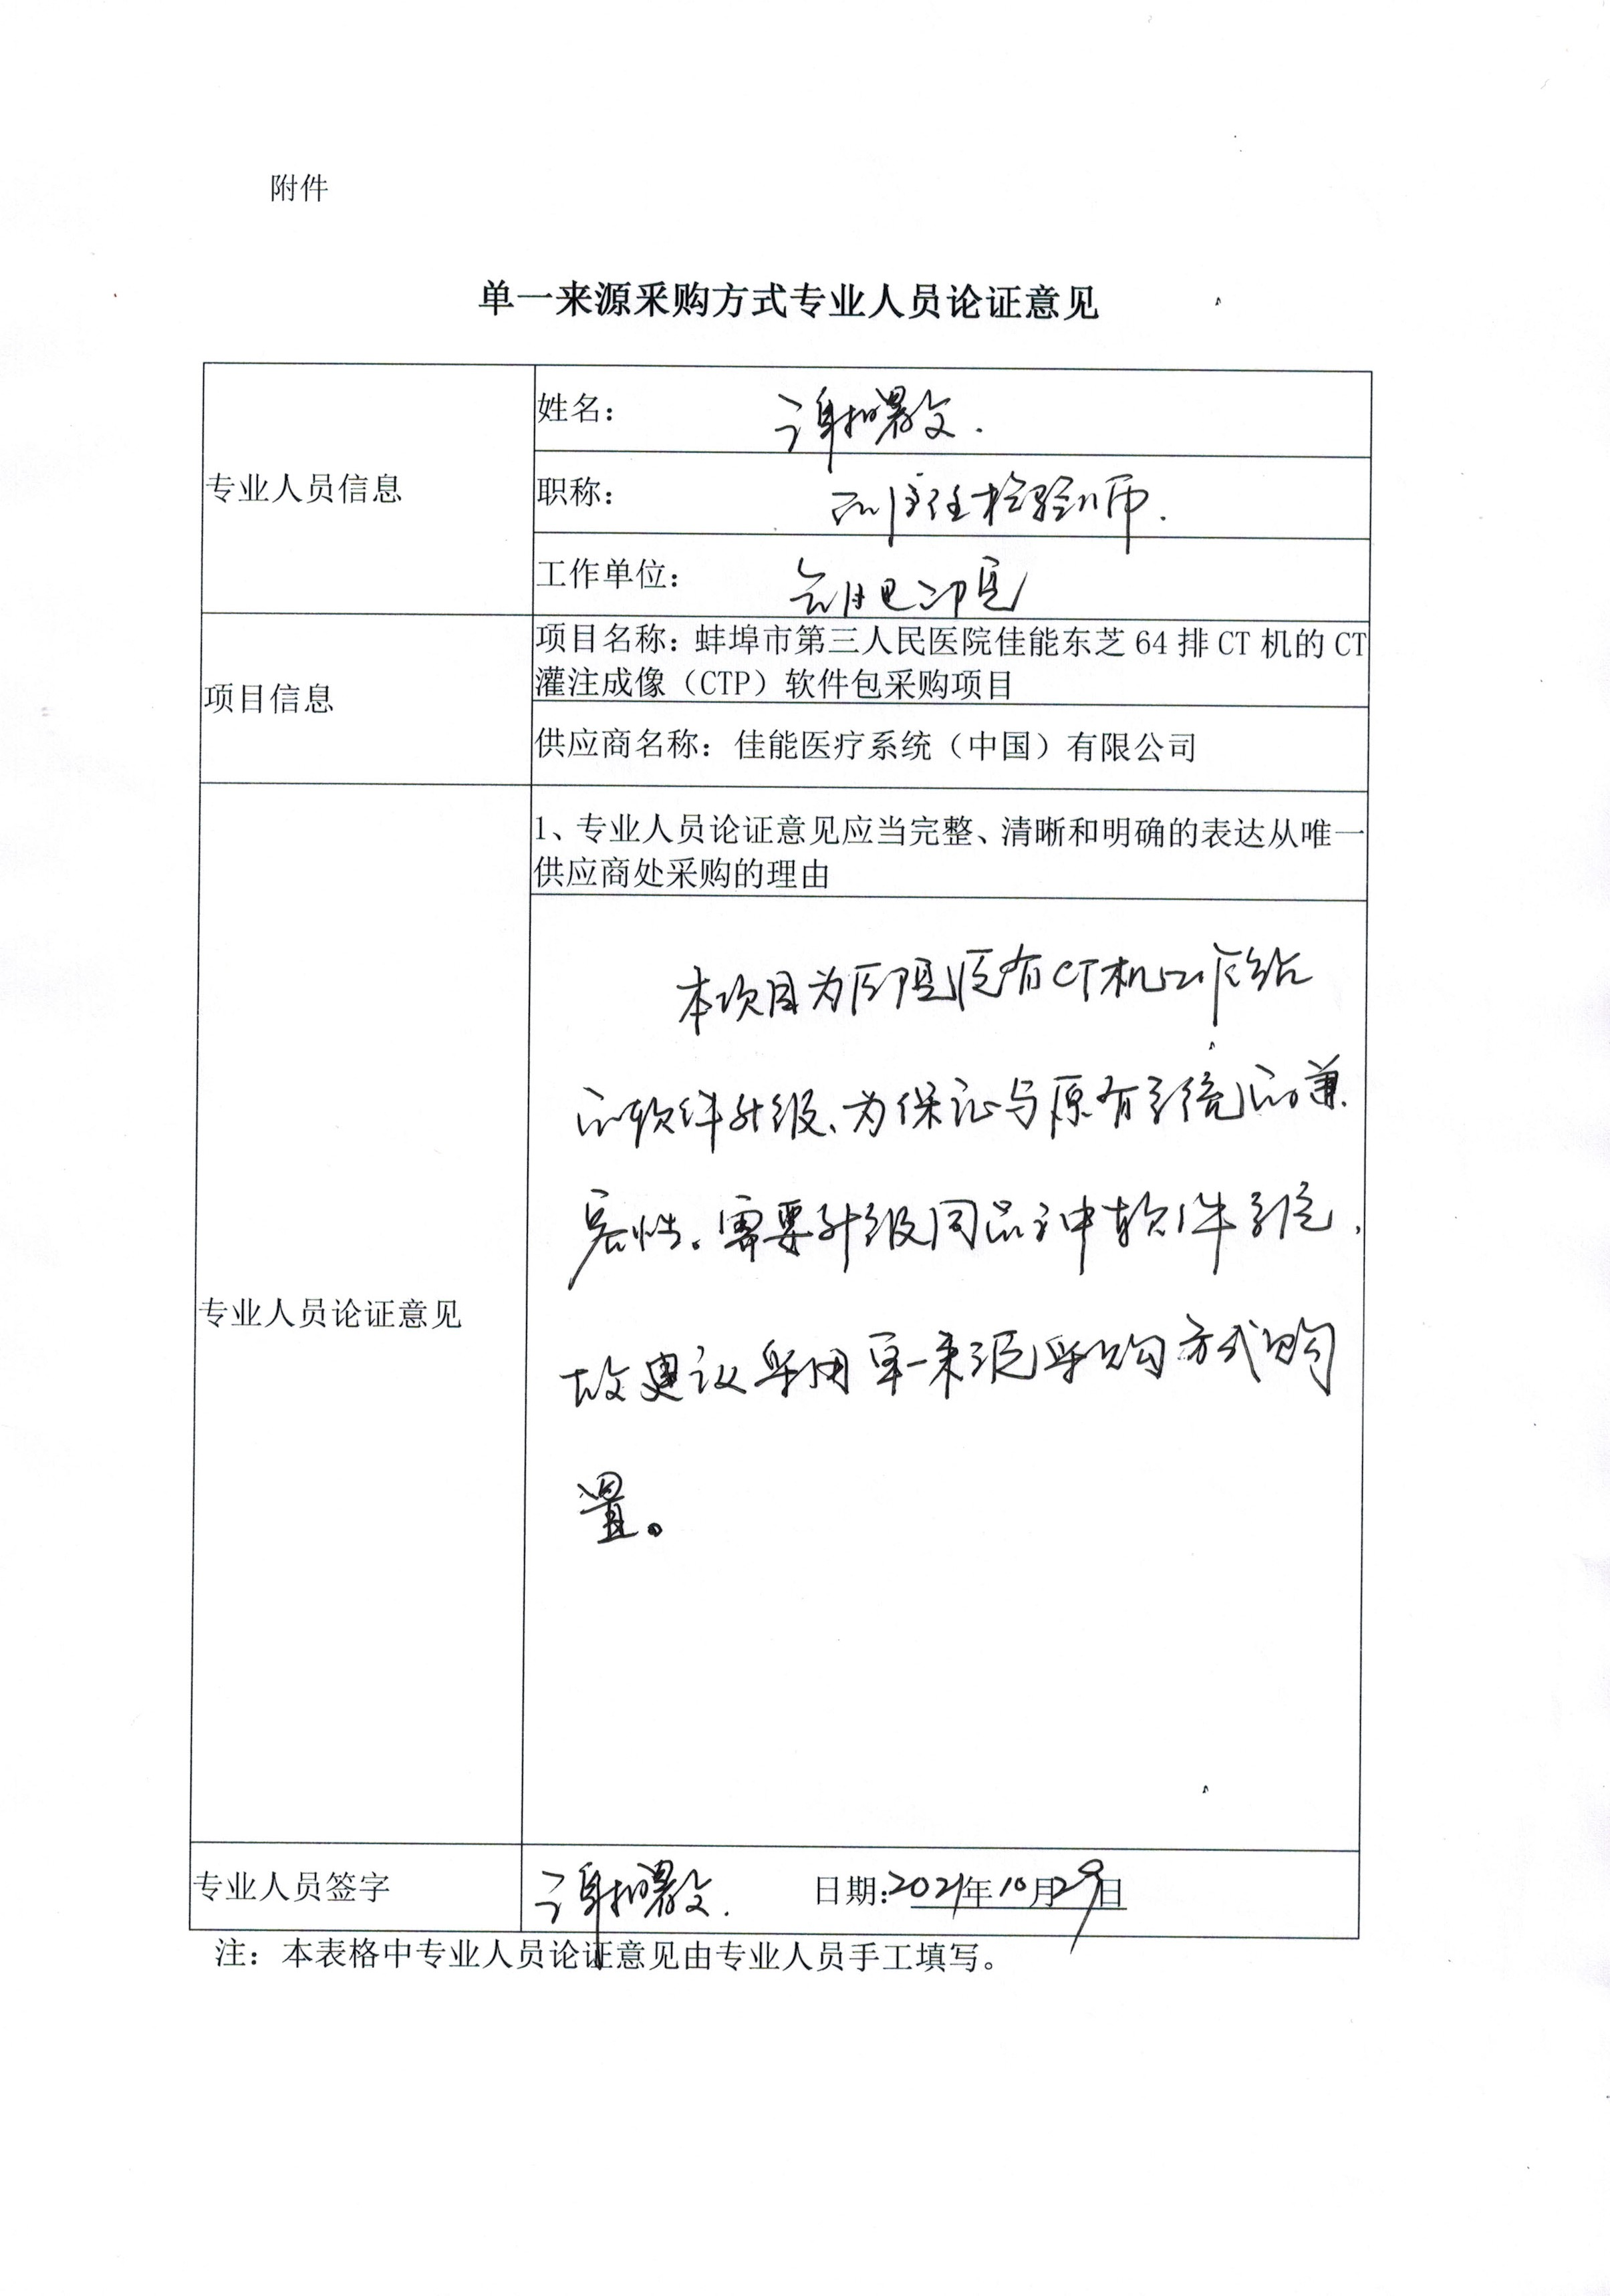 附件
单一来源采购方式专业人员论证意见
专业人员信息
姓名：
职称： 副主任检验师.
工作单位：
项目信息
项目名称：蚌埠市第三人民医院佳能东芝 64 排 CT 机的 CT
灌注成像（CTP）软件包采购项目
供应商名称：佳能医疗系统（中国）有限公司
专业人员论证意见
1、专业人员论证意见应当完整、清晰和明确的表达从唯一
供应商处采购的理由
本项目为医院原有CT机工作站
的软件升级、为保证与原有系统的兼
容性。需要升级同品牌软件系统，
故建议采用单一来源采购方式购
置。
专业人员签字
日期：2021年10月29日
注：本表格中专业人员论证意见由专业人员手工填写。